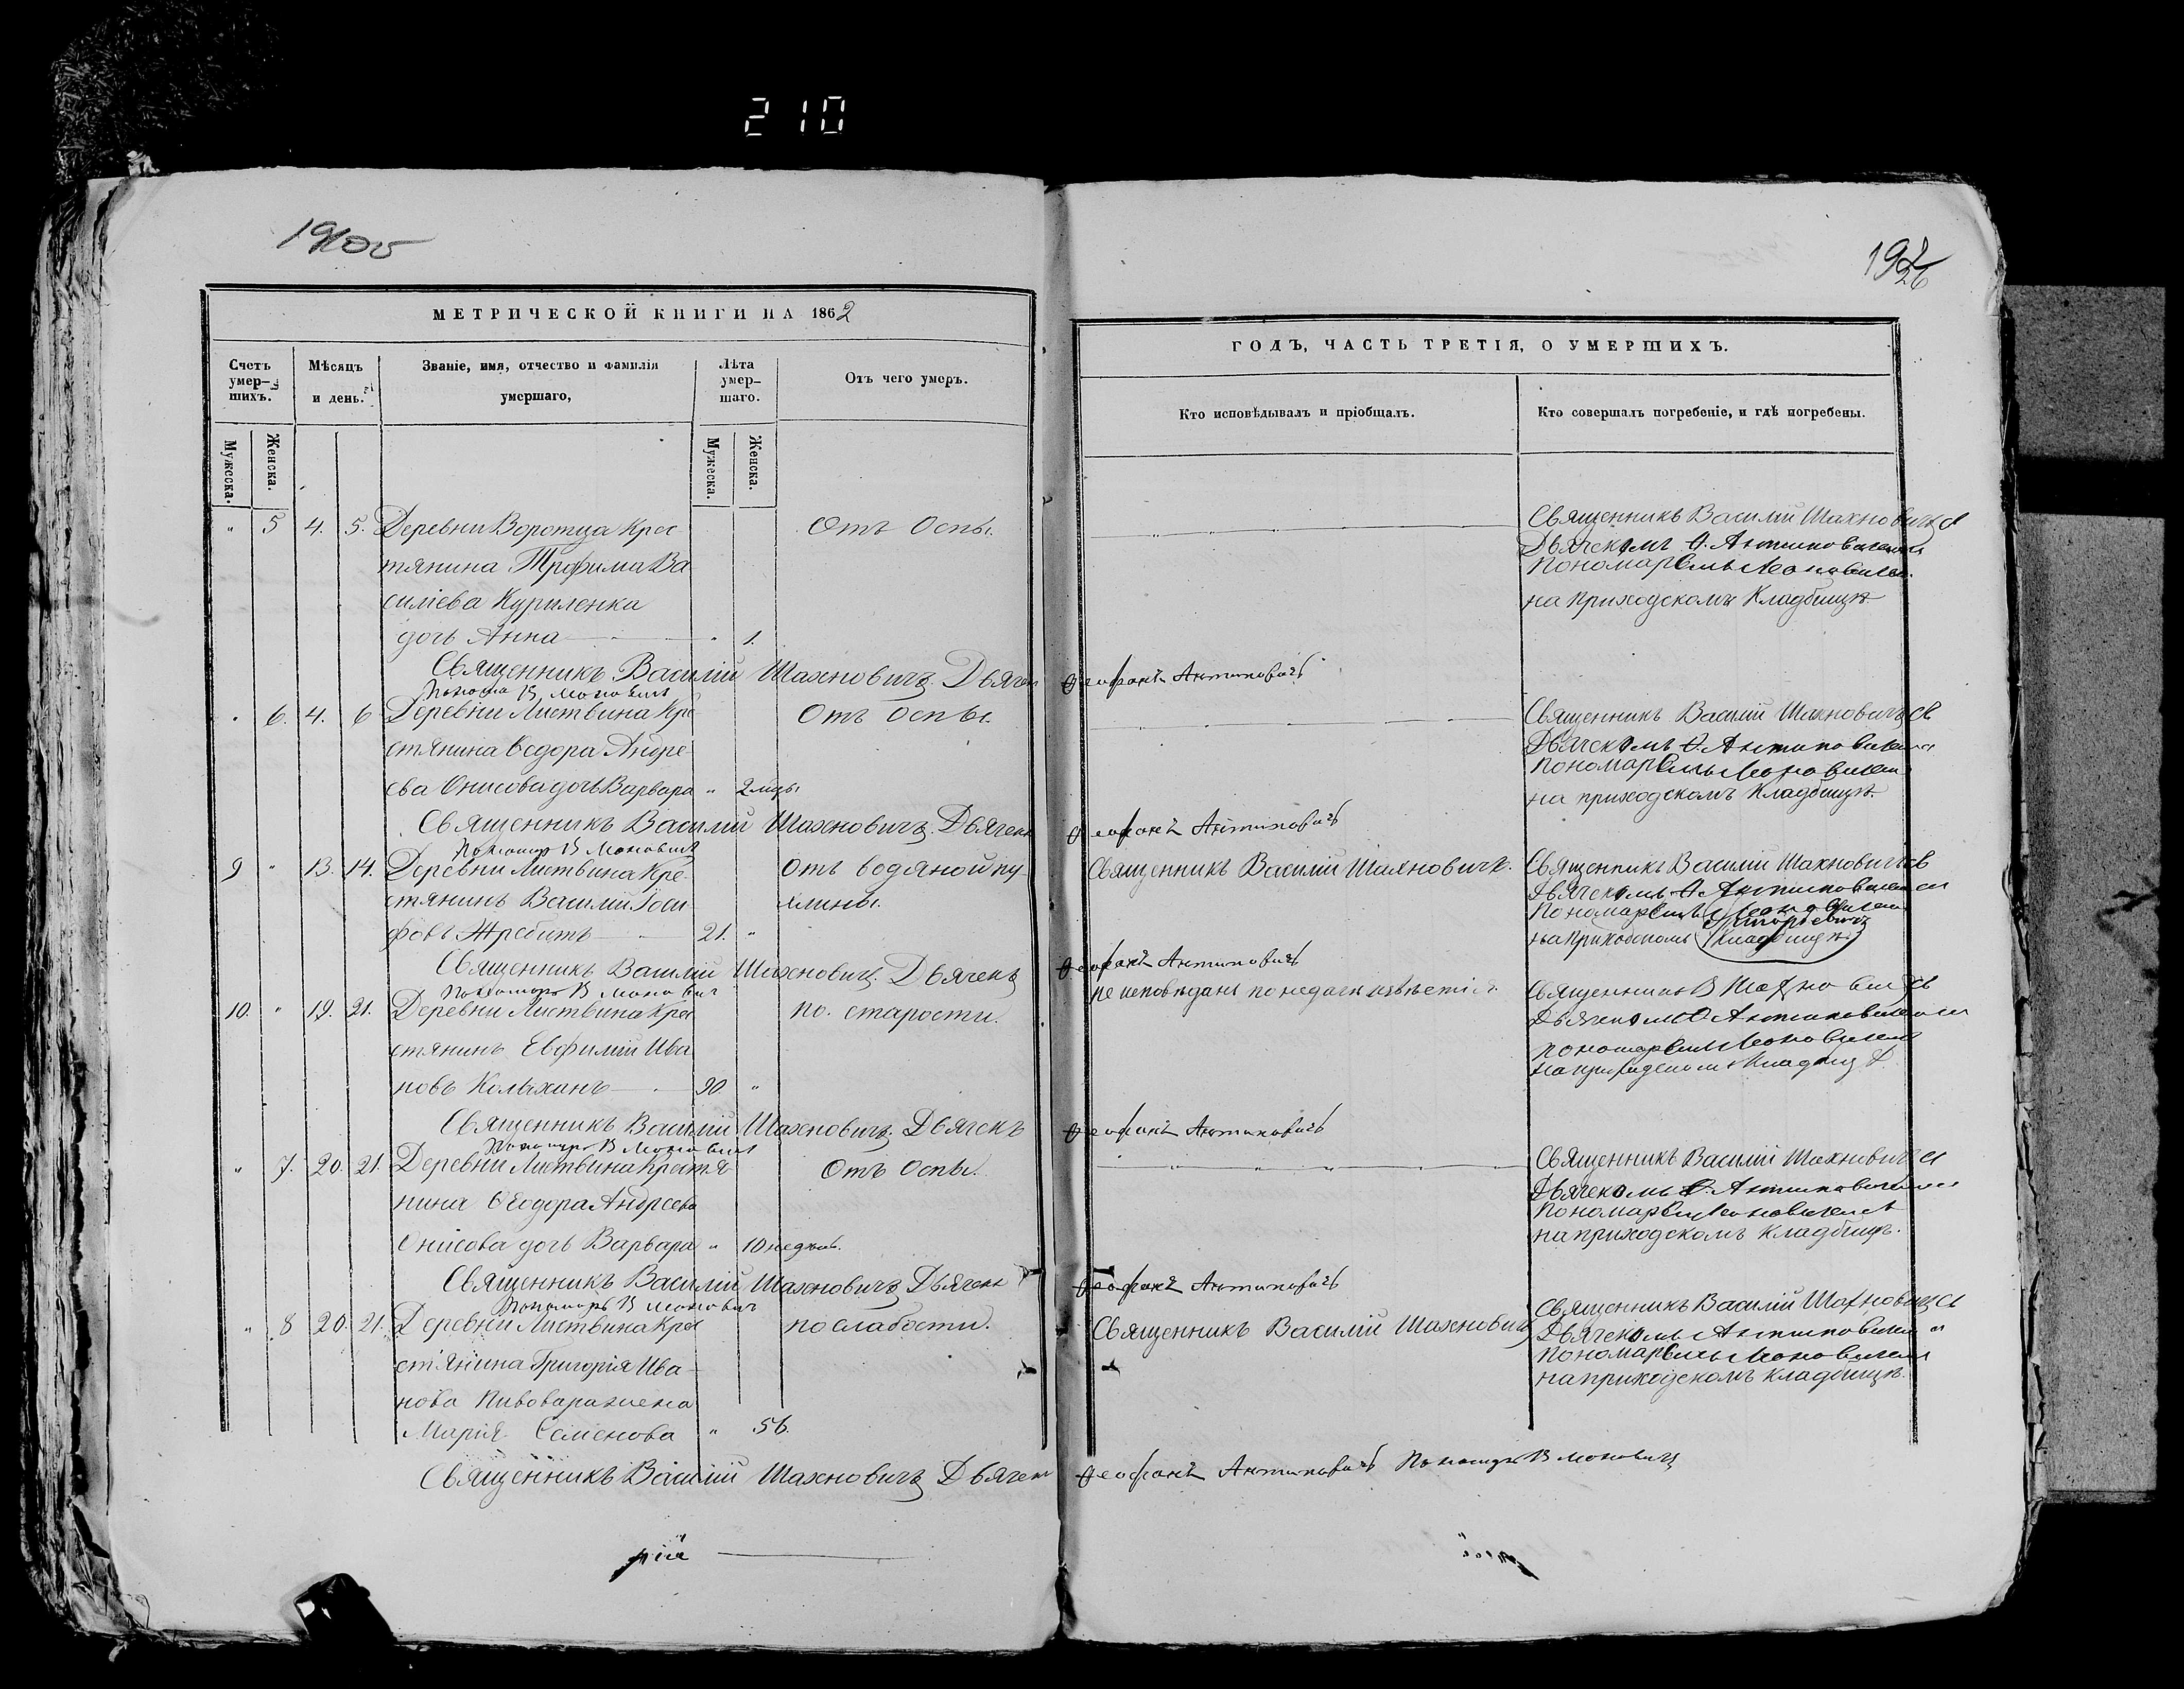 210
192
МЕТРИЧЕСКОЙ КНИГИ НА 1862
Счетъ умер-шихъ.
Мѣсяцъ и день.
Званіе, имя, отчество и фамилія умершаго,
Лѣта умер-шаго.
Отъ чего умеръ.
Мужеска.
Женска.
Мужеска.
Женска.
" 5 4. 5. Деревни Воротца Крес Отъ Оспы.
тянина Трофима Ва
силіева Куриленка
дочь Анна " 1.
Священникъ Василій Шахновичъ. Дьячек
6. 4. 6 Деревни Листвина Кре Отъ Оспы.
стянина Ѳедора Андре
ева Онисова дочь Варвара " 2 мцы
Священникъ Василій Шахновичъ. Дьячекъ
Пономаръ В Моновичъ
9 " 13. 14. Деревни Листвина Кре- Отъ водяной пу-
стянинъ Василій Іоси
фовъ Жребитъ 21. "
Священникъ Василій Шахновичъ. Дьячекъ
Пономаръ В Монович
10. " 19. 21. Деревни Листвина Крес по. старости.
стянинъ Евфимій Ива
новъ Колыханъ 90. "
Священникъ Василій Шахновичъ. Дьячекъ
Пономаръ В Моновичъ
" 7. 20. 21. Деревни Листвина Крестья Отъ Оспы.
нина Ѳеодора Андреева
Онисова дочь Варвара " 10 недѣль.
Священникъ Василій Шахновичъ Дьячекъ
Пономаръ В Монович
" 8 20. 21. Деревни Листвина Крес по слабости.
стянина Григорія Ива-
нова Пивовара жена
Марія Семенова " 56.
Священникъ Василій Шахновичъ Дьячек
ГОДЪ, ЧАСТЬ ТРЕТІЯ, О УМЕРШИХЪ.
Кто исповѣдывалъ и пріобщалъ.
Кто совершалъ погребеніе, и гдѣ погребены.
Священникъ Василій Шахновичъ съ
Дьячкомъ Ѳ. Антиповичемъ и
Пономаремъ Моновичем
на приходскомъ Кладбищѣ
Ѳеофанъ Антиповичъ
Священникъ Василій Шахновичъ съ
Дьячкомъ Ѳ. Антиповичемъ и
Пономаремъ Моновичем
на приходскомъ Кладбищѣ.
Ѳеофанъ Антиповичъ
Священникъ Василій Шахновичъ. Священникъ Василій Шахновичъ съ
Дьячкомъ Ѳ. Антиповичемъ и
Пономаремъ Моновичем
на приходскомъ Кладбищѣ
Ѳеофанъ Антиповичъ
не исповѣданъ по недачи извѣстія. Священникъ В Шахновичъ съ
Дьячкомъ Ѳ Антиповичемъ и
пономаремъ Моновичем
на приходском Кладбищѣ
Ѳеофанъ Антиповичъ
Священникъ Василій Шахновичъ съ
Дьячкомъ Ѳ. Антиповичемъ и
Пономаремъ Моновичемъ
на приходскомъ Кладбищѣ.
Ѳеофанъ Антиповичъ
Священникъ Василій Шахновичъ Священникъ Василій Шахновичъ съ
Дьячкомъ Антиповичемъ и
Пономаремъ Моновичем
на приходскомъ кладбищѣ.
Ѳеофанъ Антиповичъ Пономаръ В Моновичъ